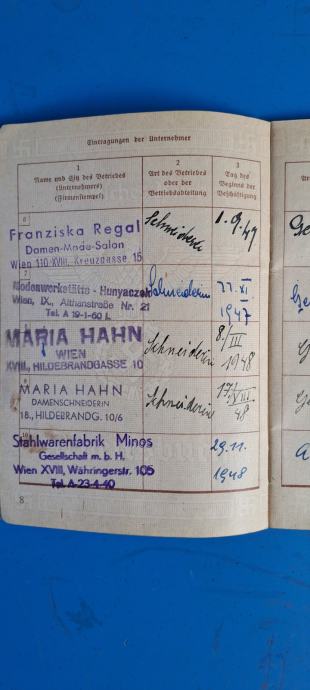 Eintragungen der Unternehmer
1
Name und Sitz des Betriebes
(Unternehmers)
(Firmenstempel)
2
Art des Betriebes
oder der
Betriebsabteilung
3
Tag des
Beginns der
Beschäftigung
6
Franziska Regal
Damen-Mode-Salon
Wien 110-XVIII, Kreuzgasse 15
Schneiderei
1.9.47
Modenwerkstätte - Hunyaczek
Wien, IX., Althanstraße Nr. 21
Tel. A 19-1-60 L
Schneiderin
11. XI
1947
MARIA HAHN
WIEN
XVIII, HILDEBRANDGASSE 10
Schneiderin
8./III
1948
MARIA HAHN
DAMENSCHNEIDERIN
18., HILDEBRANDG. 10/6
Schneiderei
17./VIII.
48
Stahlwarenfabrik Minos
Gesellschaft m. b. H.
Wien XVIII, Währingerstr. 105
Tel. A-23-4-40
29.11.
1948
8